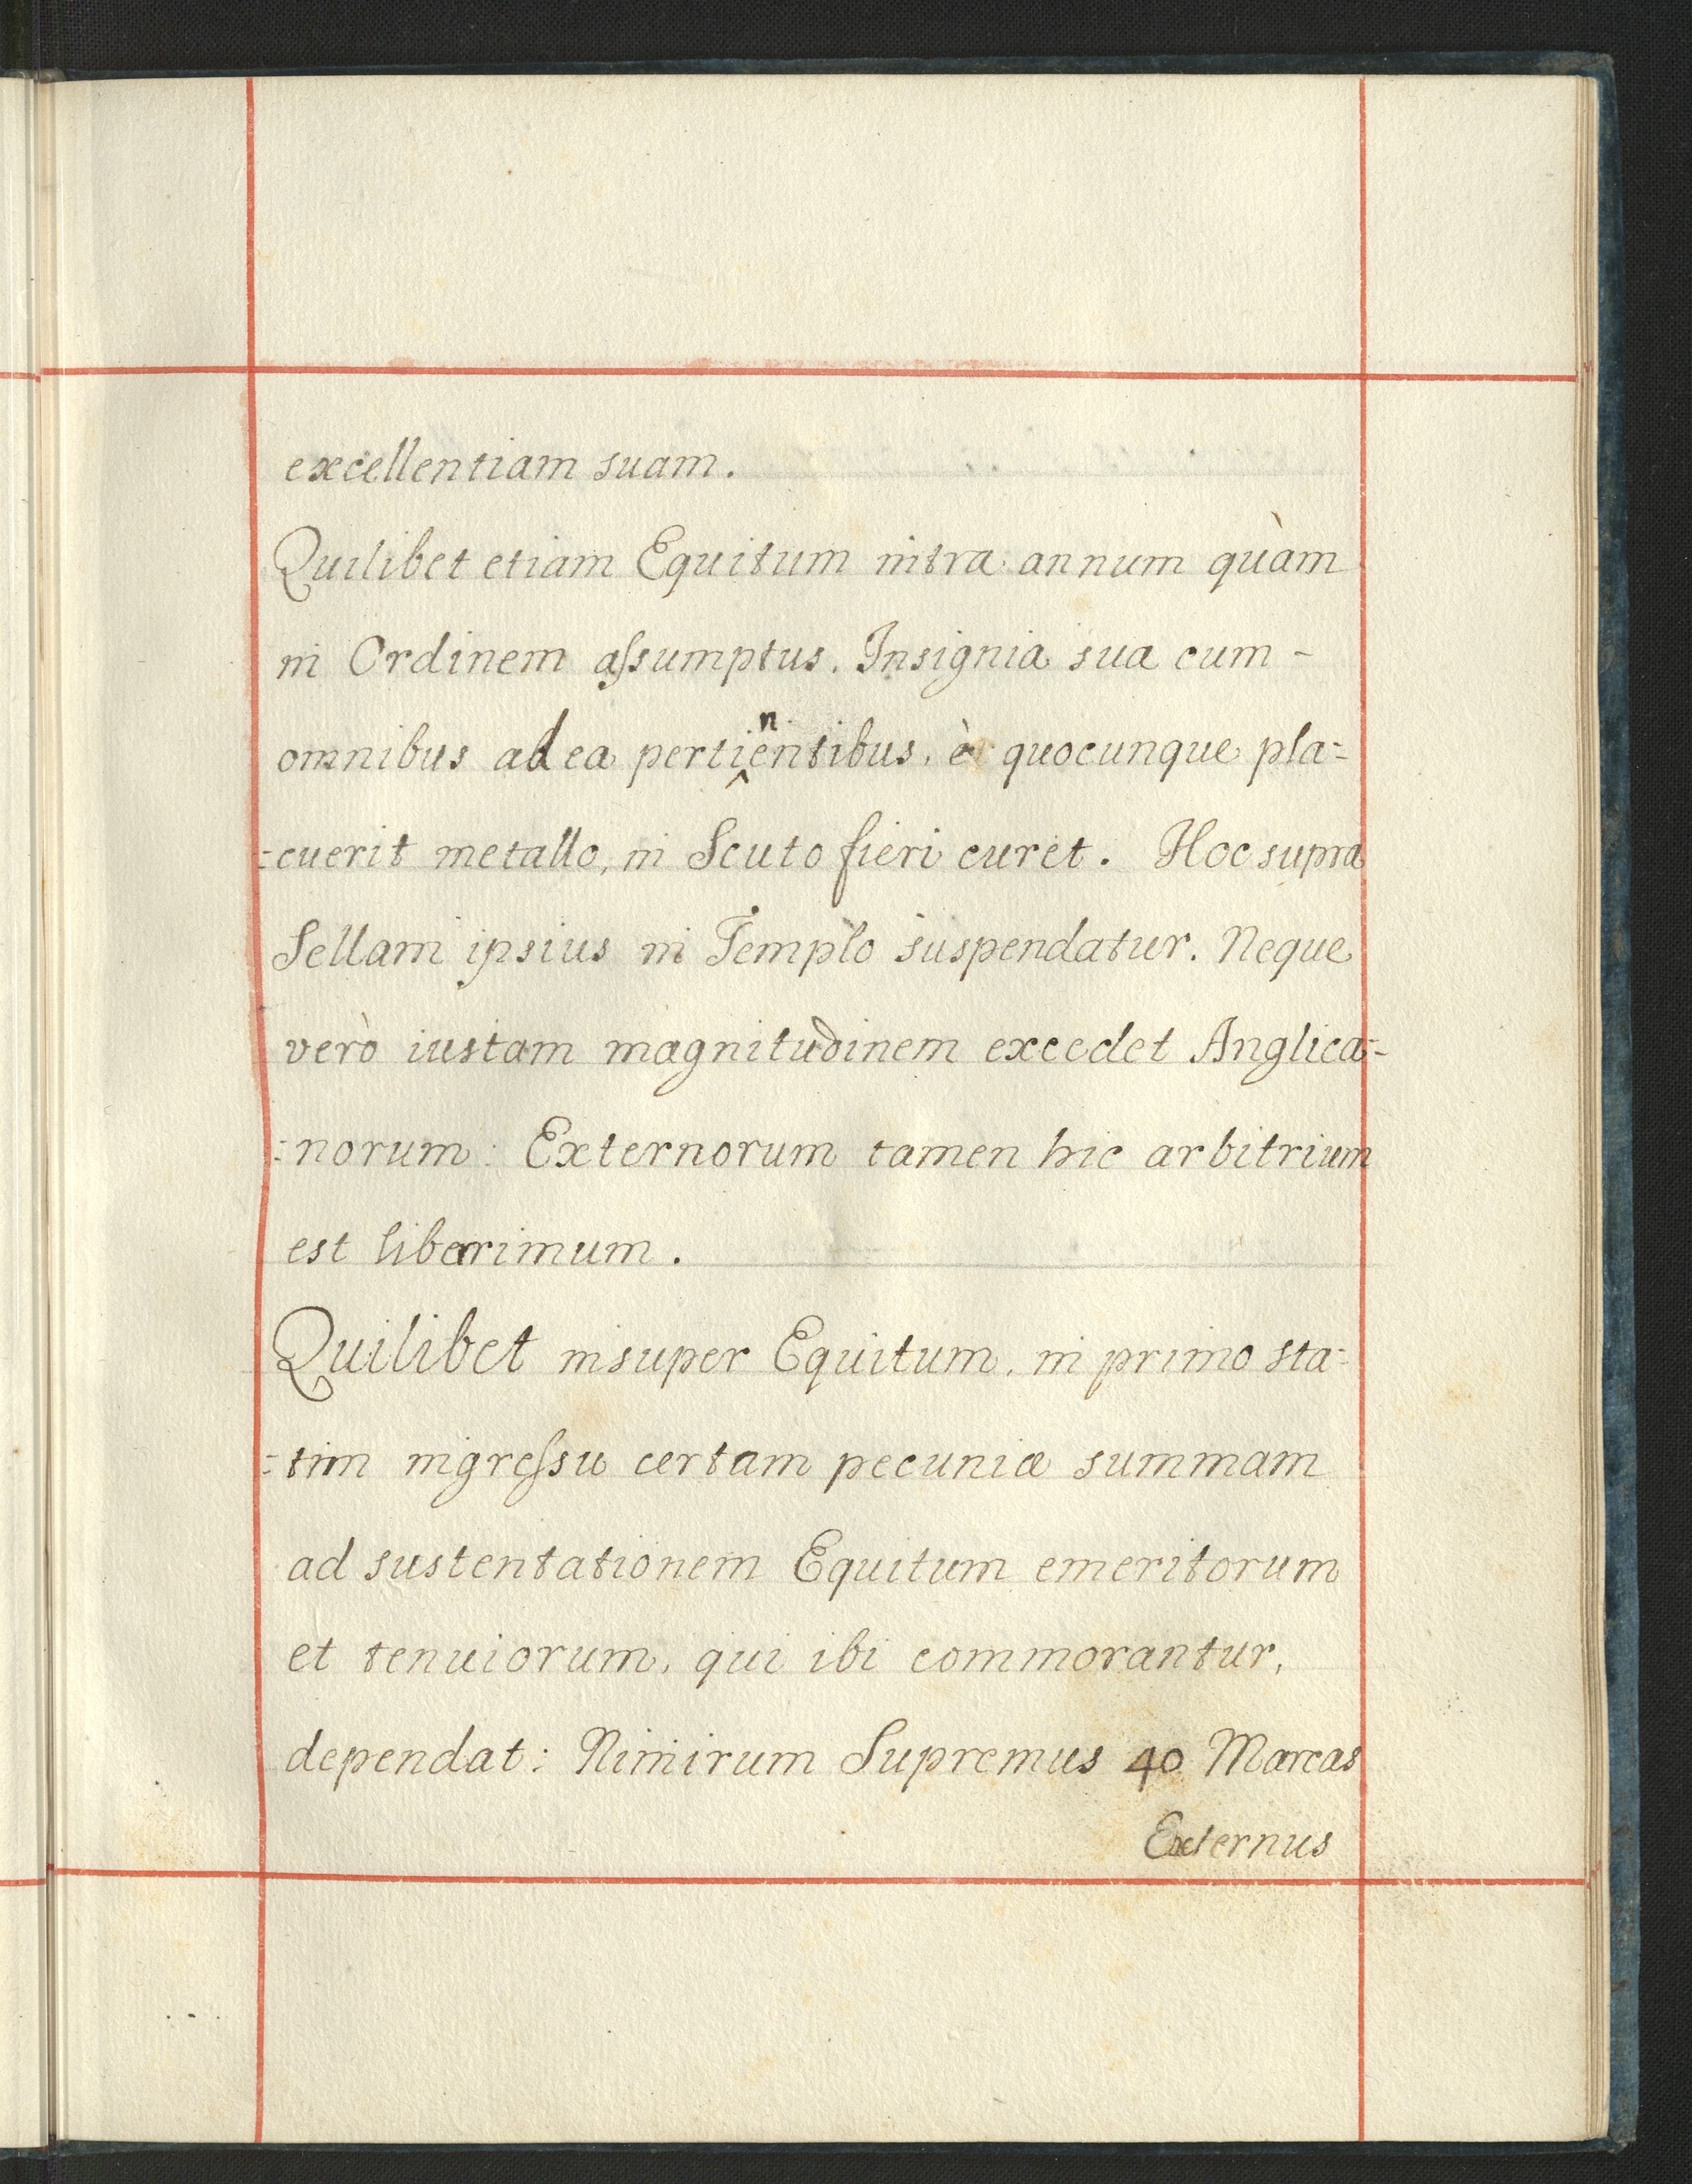 excellentiam suam.
Quilibet etiam Equitum intra annum quàm
in Ordinem aſsumptus. Insignia sua cum -
omnibus ad ea pertinentibus, è quocunque pla=
=cuerit metallo, in Scuto fieri curet. Hoc supra
Sellam ipsius in Templo suspendatur. Neque
verò iustam magnitudinem excedet Anglica=
=norum: Externorum tamen hic arbitrium
est liberimum.
Quilibet insuper Equitum, in primo sta=
=tim ingreſsu certam pecuniæ summam
ad sustentationem Equitum emeritorum
et tenuiorum, qui ibi commorantur,
dependat: Nimirum Supremus 40 Marcas
Externus